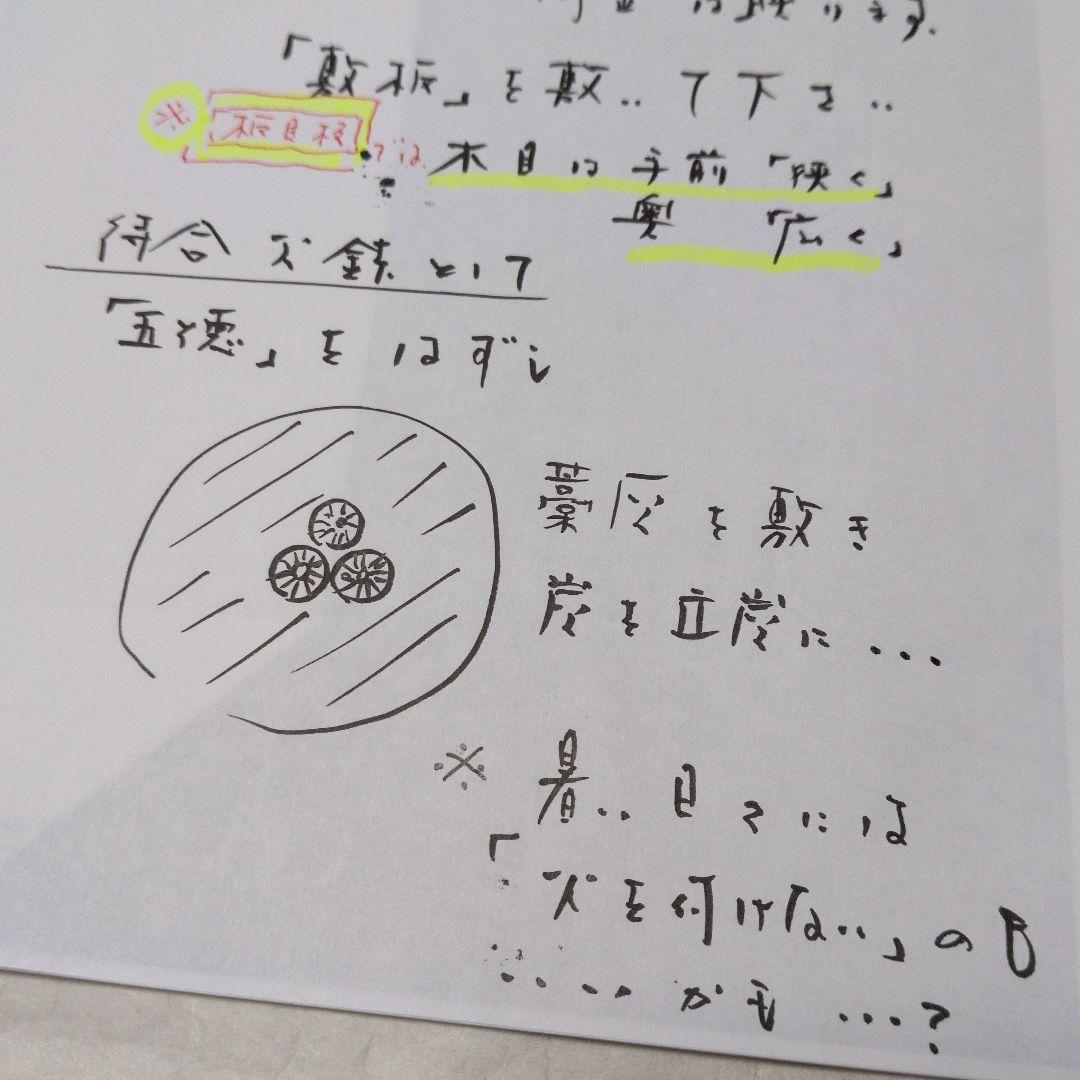 「敷板」を敷いて下さい
※ 板目板では、木目は手前「狭く」
奥 「広く」
待合 火鉢として
「五徳」をはずし
藁灰を敷き
炭を立炭に...
※ 暑い日々には
「火を付けない」のも
いい かも ...?